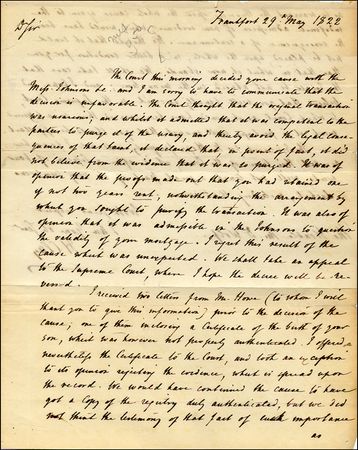 Frankfort 29th May 1822
Dr Sir
The Court this morning decided your cause with the
Mess. Johnsons &c. and I am sorry to have to communicate that the
decision is unfavorable. The Court thought that the original transaction
was usurious; and whilst it admitted that it was competent to the
parties to purge it of the usury, and thereby avoid the legal conse
quences of that taint, it declared that, in point of fact, it did
not believe from the evidence that it was so purged. It was of
opinion that the proofs made out that you had retained one
if not two years rent, notwithstanding the arrangement by
which you sought to purify the transaction. It was also of
opinion that it was admissible in the Johnsons to question
the validity of your mortgage. I regret this result of the
cause which was unexpected. We shall take an appeal
to the Supreme Court, where I hope the decree will be re
versed.
I received two letters from Mr. Howe (to whom I will
thank you to give this information) prior to the decision of the
cause; one of them inclosing a Certificate of the birth of your
son, which was however not properly authenticated. I offered
nevertheless the Certificate to the Court, and took an exception
to its opinion rejecting the evidence, which is spread upon
the record. We would have continued the cause to have
got a Copy of the registry duly authenticated, but we did
not think the testimony of that fact of such importance
as